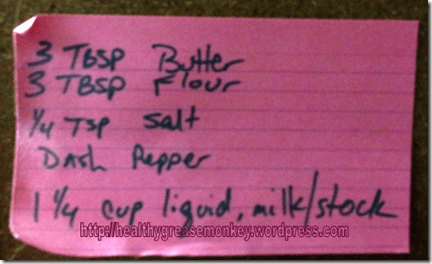 3 TBSP Butter
3 TBSP Flour
1/4 TSP Salt
DAsh Pepper
1 1/4 cup liquid, milk/stock
http://healthygreasemonkey.wordpress.com